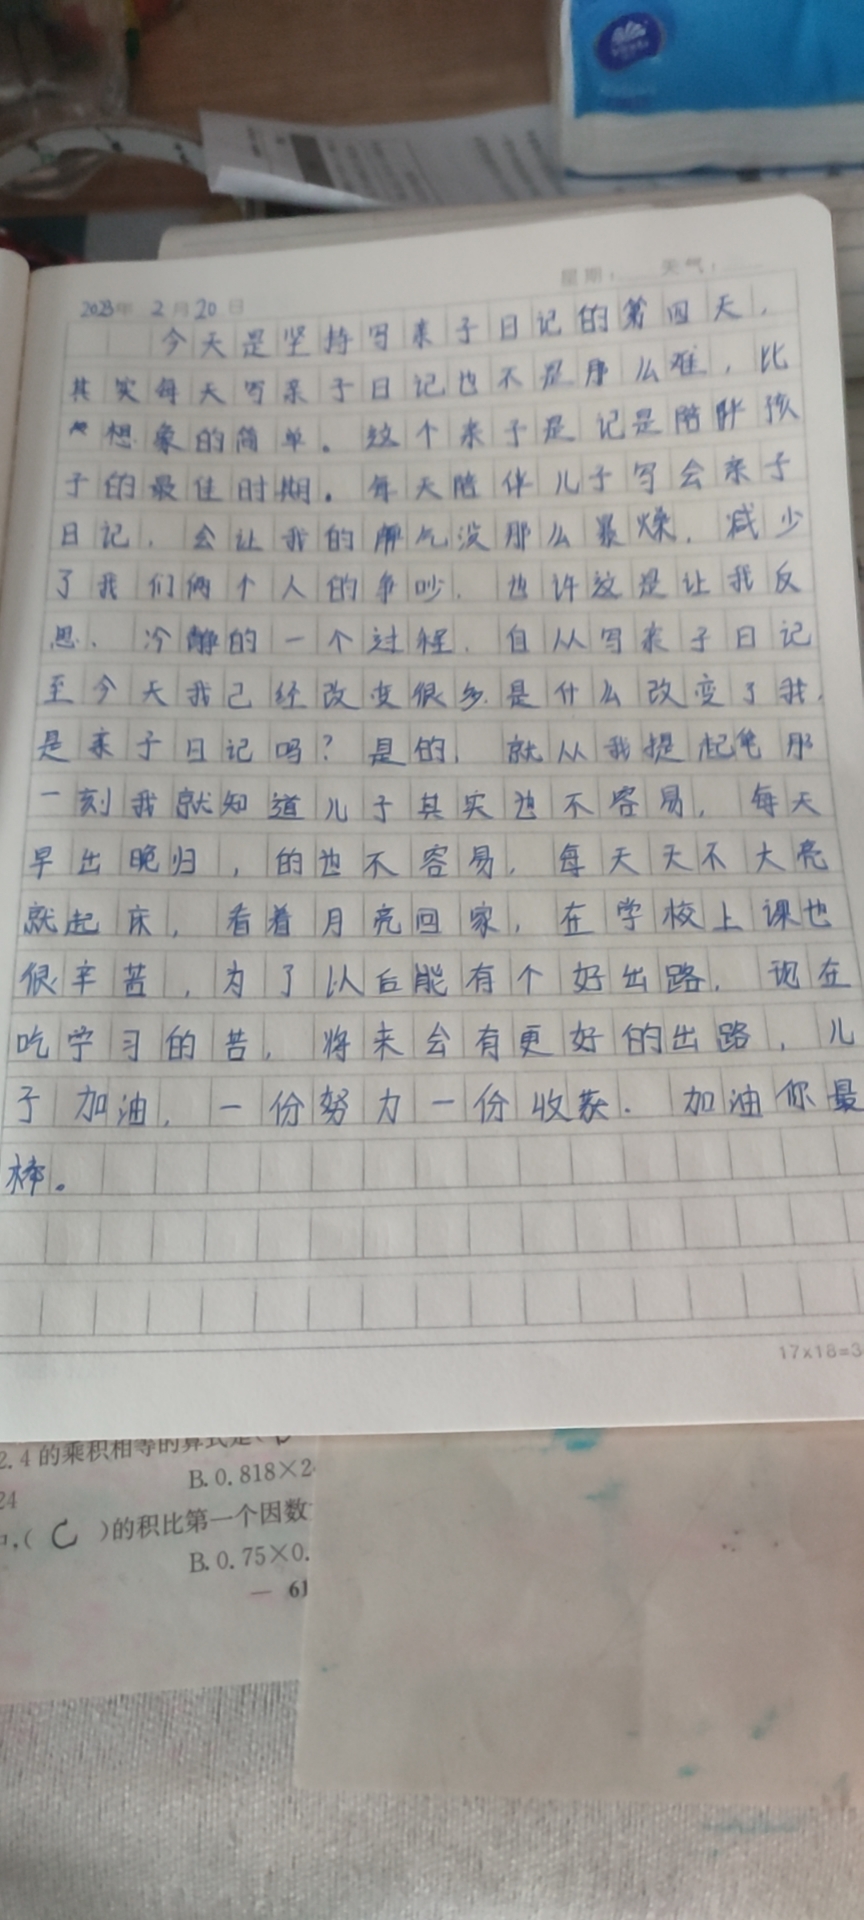 星期： 天气：
2023年 2月20日
今天是坚持写亲子日记的第四天，
其实每天写亲子日记也不是那么难，比
想象的简单。这个亲子是记是陪伴孩
子的最佳时期。每天陪伴儿子写会亲子
日记，会让我的脾气没那么暴燥，减少
了我们俩个人的争吵，也许这是让我反
思、冷静的一个过程，自从写亲子日记
至今天我己经改变很多是什么改变了我，
是亲子日记吗？是的，就从我提起笔那
一刻我就知道儿子其实也不容易，每天
早出晚归，的也不容易，每天天不大亮
就起床，看着月亮回家，在学校上课也
很辛苦，为了以后能有个好出路，现在
吃学习的苦，将来会有更好的出路，儿
子加油，一份努力一份收获．加油你最
棒。
17×18=3
2.4的乘积相等的算式是(
B.0.818×2
24
,( C )的积比第一个因数
B.0.75×0.
— 61